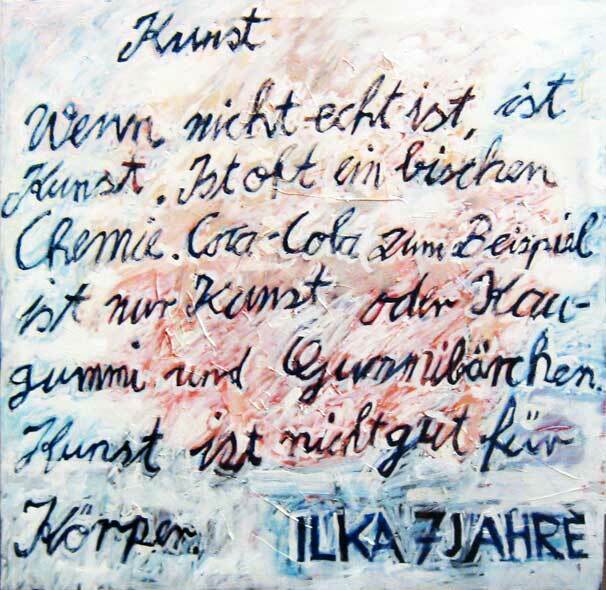 Kunst
Wenn nicht echt ist, ist
Kunst. Ist oft ein bischen
Chemie. Coca-Cola zum Beispiel
ist nur Kunst oder Kau-
gummi und Gummibärchen.
Kunst ist nicht gut für
Körper. ILKA 7 JAHRE